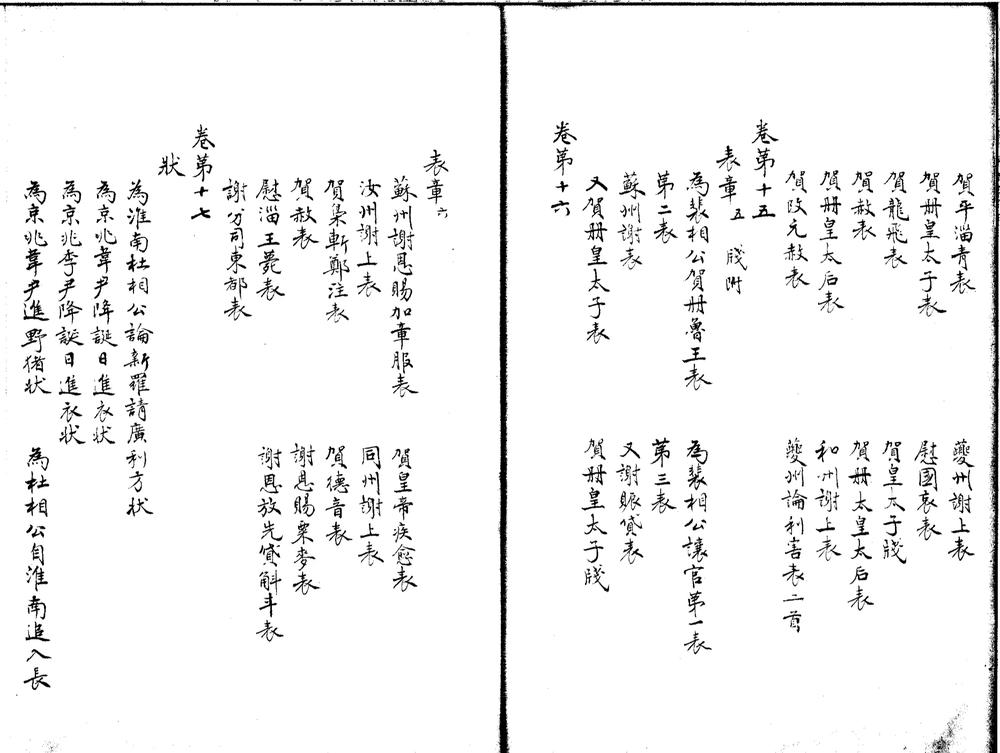 賀平淄青表　夔州謝上表
賀册皇太子表　慰國哀表
賀龍飛表　賀皇太子牋
賀赦表　賀册太皇太后表
賀册皇太后表　和州謝上表
賀改元赦表　夔州論利害表二首
卷第十五
表章五　牋附
為裴相公賀册魯王表　為裴相公讓官第一表
第二表　第三表
蘇州謝表　又謝賑貸表
又賀册皇太子表　賀册皇太子牋
卷第十六
表章六
蘇州謝恩賜加章服表　賀皇帝疾愈表
汝州謝上表　同州謝上表
賀梟斬鄭注表　賀德音表
賀赦表　謝恩賜粟麥表
慰淄王薨表　謝恩放先貸斛斗表
謝分司東都表
卷第十七
狀
為淮南杜相公論新羅請廣利方狀
為京兆韋尹降誕日進衣狀
為京兆李尹降誕日進衣狀
為京兆韋尹進野豬狀　為杜相公自淮南追入長